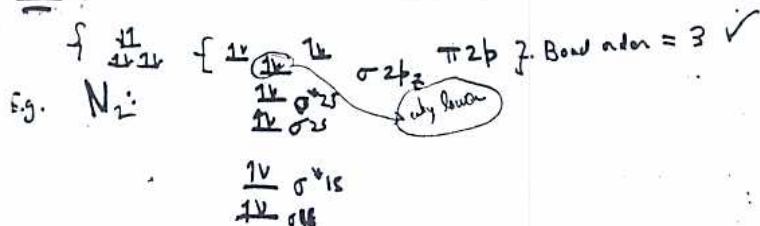 { 1l 1l 1l { 1l 1l 1l σ2p_z π2p }. Bond order = 3 ✓
E.g. N₂: 1l σ*2s why lower
1l σ2s
1l σ*1s
1l σ1s